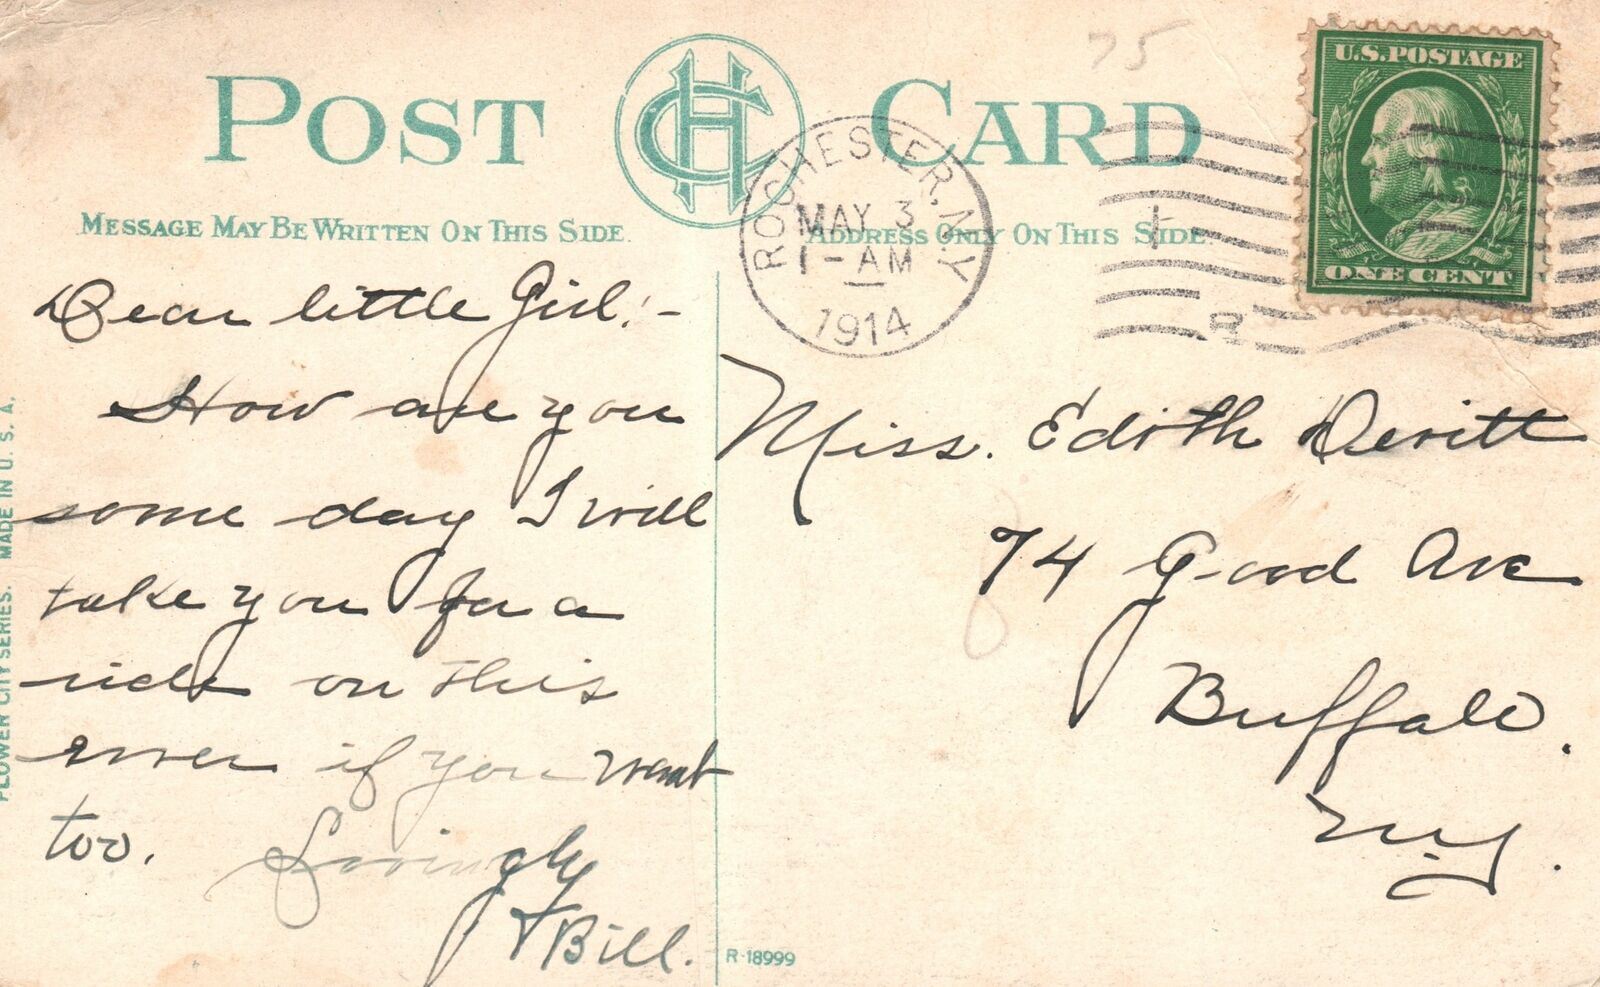 POST CARD
CH
75
U.S. POSTAGE
ONE CENT
ROCHESTER, N.Y.
MAY 3
1-AM
1914
MESSAGE MAY BE WRITTEN ON THIS SIDE.
ADDRESS ONLY ON THIS SIDE.
Dear little Girl! -
How are you
some day I will
take you for a
ride on this
river if you want
too. Lovingly
Bill.
Miss. Edith Devitt
74 Good Ave
Buffalo.
N.Y.
FLOWER CITY SERIES. MADE IN U. S. A.
R-18999